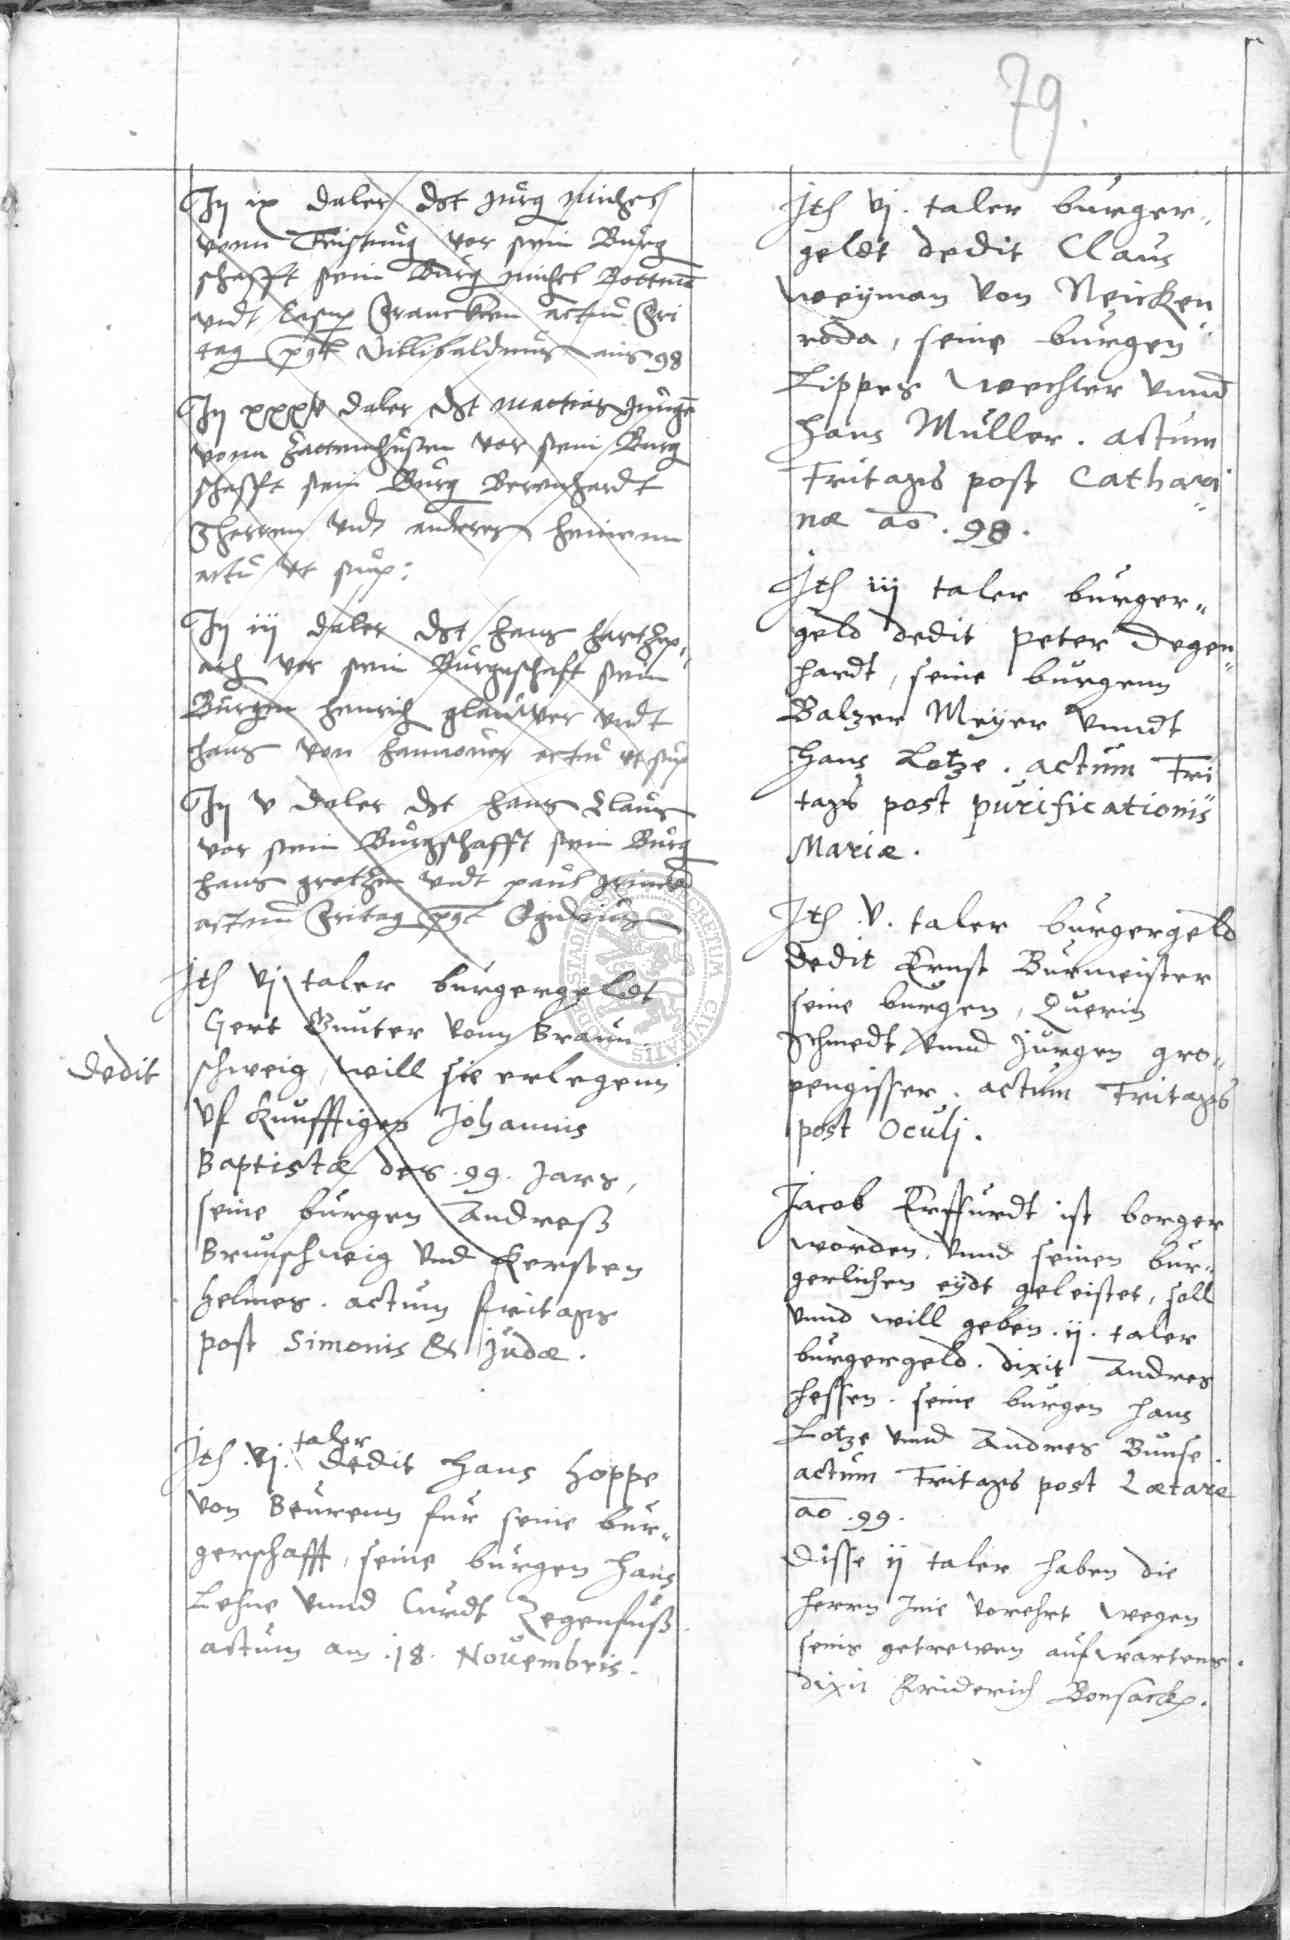 79
In ix daler dt Jurg Michel
vonn vor sein Burg
schafft sein Burg Michel
vndt Francken actum Fri
tag post Willibaldus anno 98
In daler dt Mattias Junge
vonn vor sein Burg
schafft sein Burg Berenhardt
vndt anderes
actu vt sup:
In iij daler dt Hans
vor sein Burgschaft sein
Burgen Henrich vndt
Hans von Hannover actu vt sup
In v daler dt Hans Claus
vor sein Burgschafft sein Burg
Hans vndt Paul
actum Fritag post Egidius
Ith vj taler burgergeldt
Gert Gunter vonn Braun
dedit
schweig, will sie erlegenn
vf kunfftiges Johannis
Baptistæ des .99. Jars,
seine burgen Andreß
Brunschweig vnd Kersten
Helmes. actum freitags
post Simonis & Judæ.
taler
Ith .vj. dedit Hans Hoppe
von Beurenn fur seine bur„
gerschafft, seine burgen Hans
Lehne vnnd Curdt Zegenfuß.
actum am .18. Novembris.
Ith vj. taler burger„
geldt dedit Claus
Weyman von Neicken„
roda, seine burgen
Lippes Wechter vnnd
Hans Muller. actum
Fritags post Cathari„
næ ao .98.
Ith iij taler burger„
geld dedit Peter Degen„
hardt, seine burgenn
Balzer Meyer vnndt
Hans Lotze. actum Fri„
tags post purificationis
Mariæ.
Ith .v. taler burgergeld
dedit Ernst Burmeister
seine burgen, Querin
Schmedt vnnd Jurgen gro„
pengisser. actum Fritags
post Oculj.
Jacob Erffurdt ist borger
worden, vnnd seinen bur„
gerlichen eydt geleistet, soll
vnnd will geben .ij. taler
burgergeld. dixit Andres
Hessen. seine burgen Hans
Lotze vnnd Andres Bunse.
actum Fritags post Lætare
ao .99.
Disse ij taler haben die
herrn Ime vorehrt wegen
seins getrewen aufwartens.
dixit Friderich Bonsack.